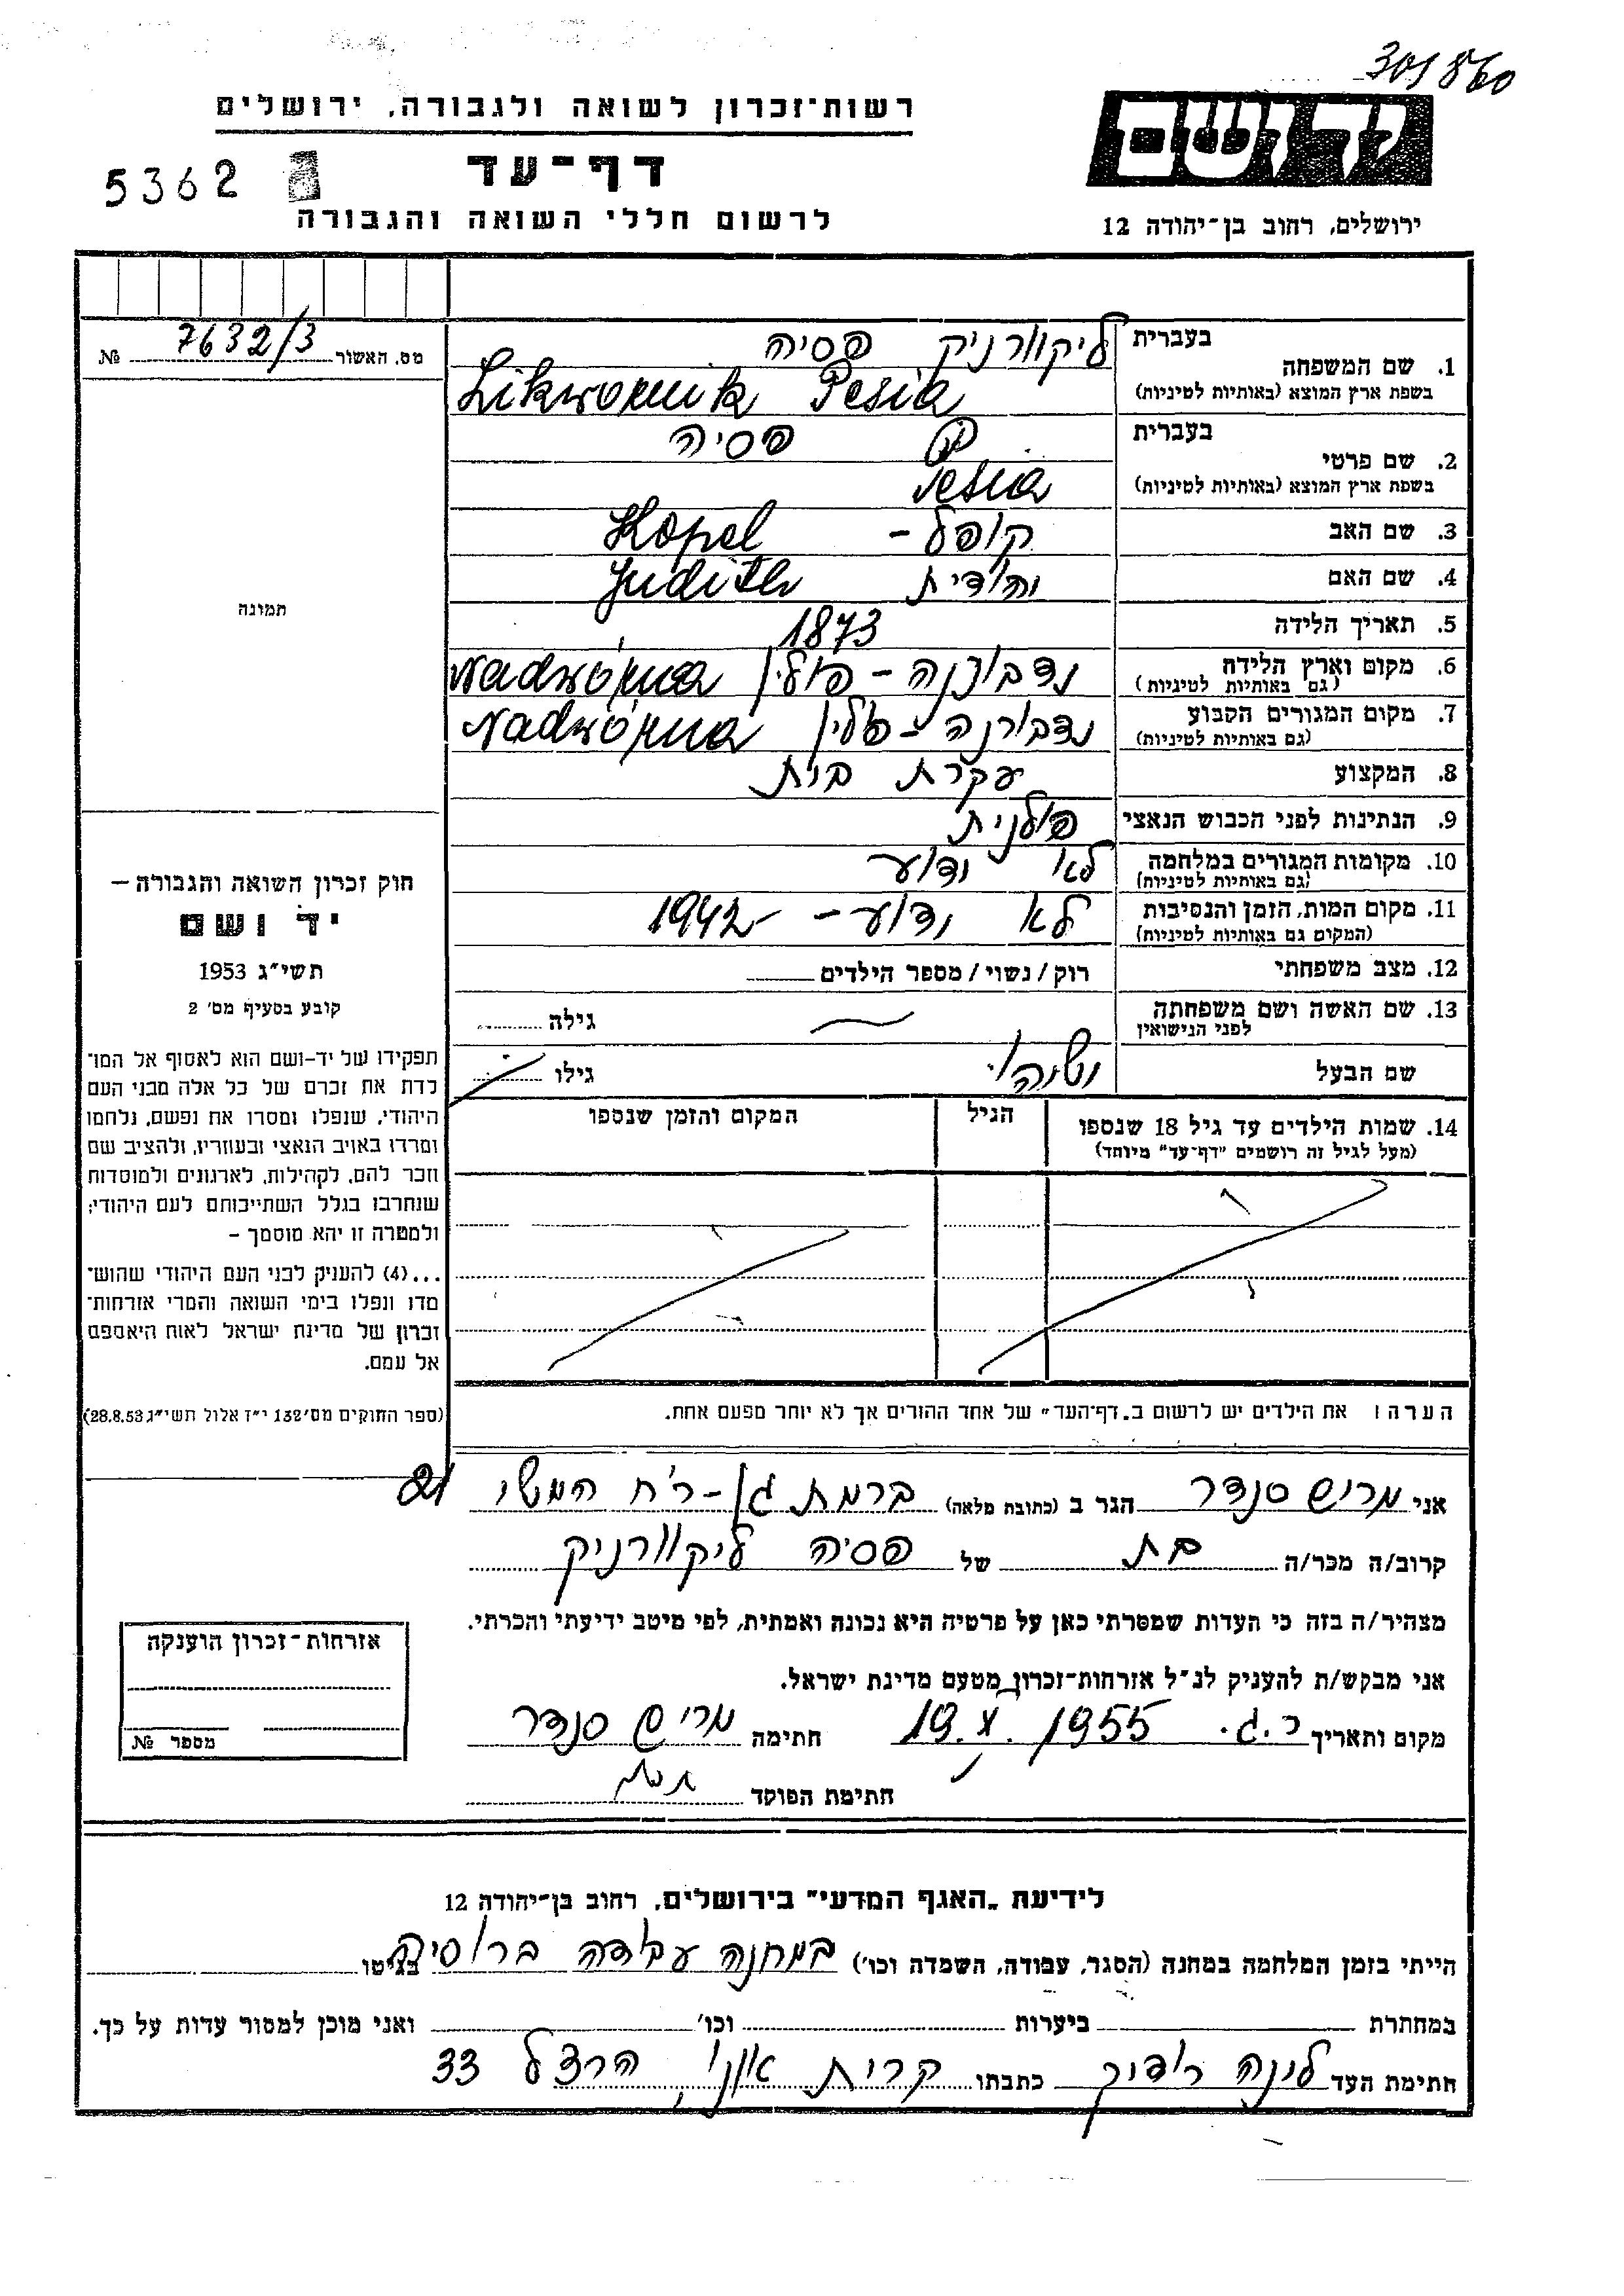 301860
רשות־זכרון לשואה ולגבורה, ירושלים
דף־עד
5362
לרשום חללי השואה והגבורה
ידושם
ירושלים, רחוב בן־יהודה 12
מס. האשור 7632/3 №
תמונה
חוק זכרון השואה והגבורה –
יד ושם
תשי״ג 1953
קובע בסעיף מס׳ 2
תפקידו של יד-ושם הוא לאסוף אל המו־
לדת את זכרם של כל אלה מבני העם
היהודי, שנפלו ומסרו את נפשם, נלחמו
ומרדו באויב הנאצי ובעוזריו, ולהציב שם
וזכר להם, לקהילות, לארגונים ולמוסדות
שנחרבו בגלל השתייכותם לעם היהודי;
ולמטרה זו יהא מוסמך –
...(4) להעניק לבני העם היהודי שהוש־
מדו ונפלו בימי השואה והמרי אזרחות־
זכרון של מדינת ישראל לאות היאספם
אל עמם.
(ספר החוקים מס׳ 132 י״ז אלול תשי״ג 28.8.53)
בעברית ליקוורניק פסיה
1. שם המשפחה
בשפת ארץ המוצא (באותיות לטיניות) Likwornik Pesia
בעברית פסיה
2. שם פרטי
בשפת ארץ המוצא (באותיות לטיניות) Pesia
3. שם האב קופל - Kopel
4. שם האם יהודית Judith
5. תאריך הלידה 1873
6. מקום וארץ הלידה נדבורנה - פולין Nadwórna
(גם באותיות לטיניות)
7. מקום המגורים הקבוע נדבורנה - פולין Nadwórna
(גם באותיות לטיניות)
8. המקצוע עקרת בית
9. הנתינות לפני הכבוש הנאצי פולנית
10. מקומות המגורים במלחמה לא ידוע
(גם באותיות לטיניות)
11. מקום המות, הזמן והנסיבות לא ידוע - 1942
(המקום גם באותיות לטיניות)
12. מצב משפחתי רוק/נשוי/מספר הילדים
13. שם האשה ושם משפחתה גילה
לפני הנישואין
שם הבעל גילו
14. שמות הילדים עד גיל 18 שנספו הגיל המקום והזמן שנספו
(מעל לגיל זה רושמים "דף־עד" מיוחד)
הערה: את הילדים יש לרשום ב„דף־העד״ של אחד ההורים אך לא יותר מפעם אחת.
אני מריש סנדר הגר ב (כתובת מלאה) ברמת גן - ר׳ח המשי 21
קרוב/ה מכר/ה בת של פסיה ליקוורניק
מצהיר/ה בזה כי העדות שמסרתי כאן על פרטיה היא נכונה ואמתית, לפי מיטב ידיעתי והכרתי.
אני מבקש/ת להעניק לנ״ל אזרחות־זכרון מטעם מדינת ישראל.
מקום ותאריך ר.ג. 19.X.1955 חתימה מריש סנדר
חתימת הפוקד
אזרחות־זכרון הוענקה
מספר №
לידיעת „האגף המדעי״ בירושלים, רחוב בן־יהודה 12
הייתי בזמן המלחמה במחנה (הסגר, עבודה, השמדה וכו׳) במחנה עבודה ברוסיה בגיטו
במחתרת ביערות וכו׳ ואני מוכן למסור עדות על כך.
חתימת העד כתבתו קרית אונו, הרצל 33